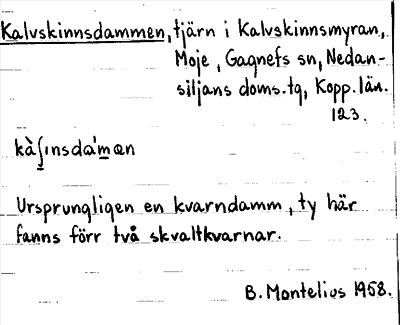 Kalvskinnsdammen, tjärn i Kalvskinnsmyran,
Moje, Gagnefs sn, Nedan-
siljans doms.tg, Kopp.län.
123.
kàʃınsdam̀en
Ursprungligen en kvarndamm, ty här
fanns förr två skvaltkvarnar.
B. Montelius 1958.